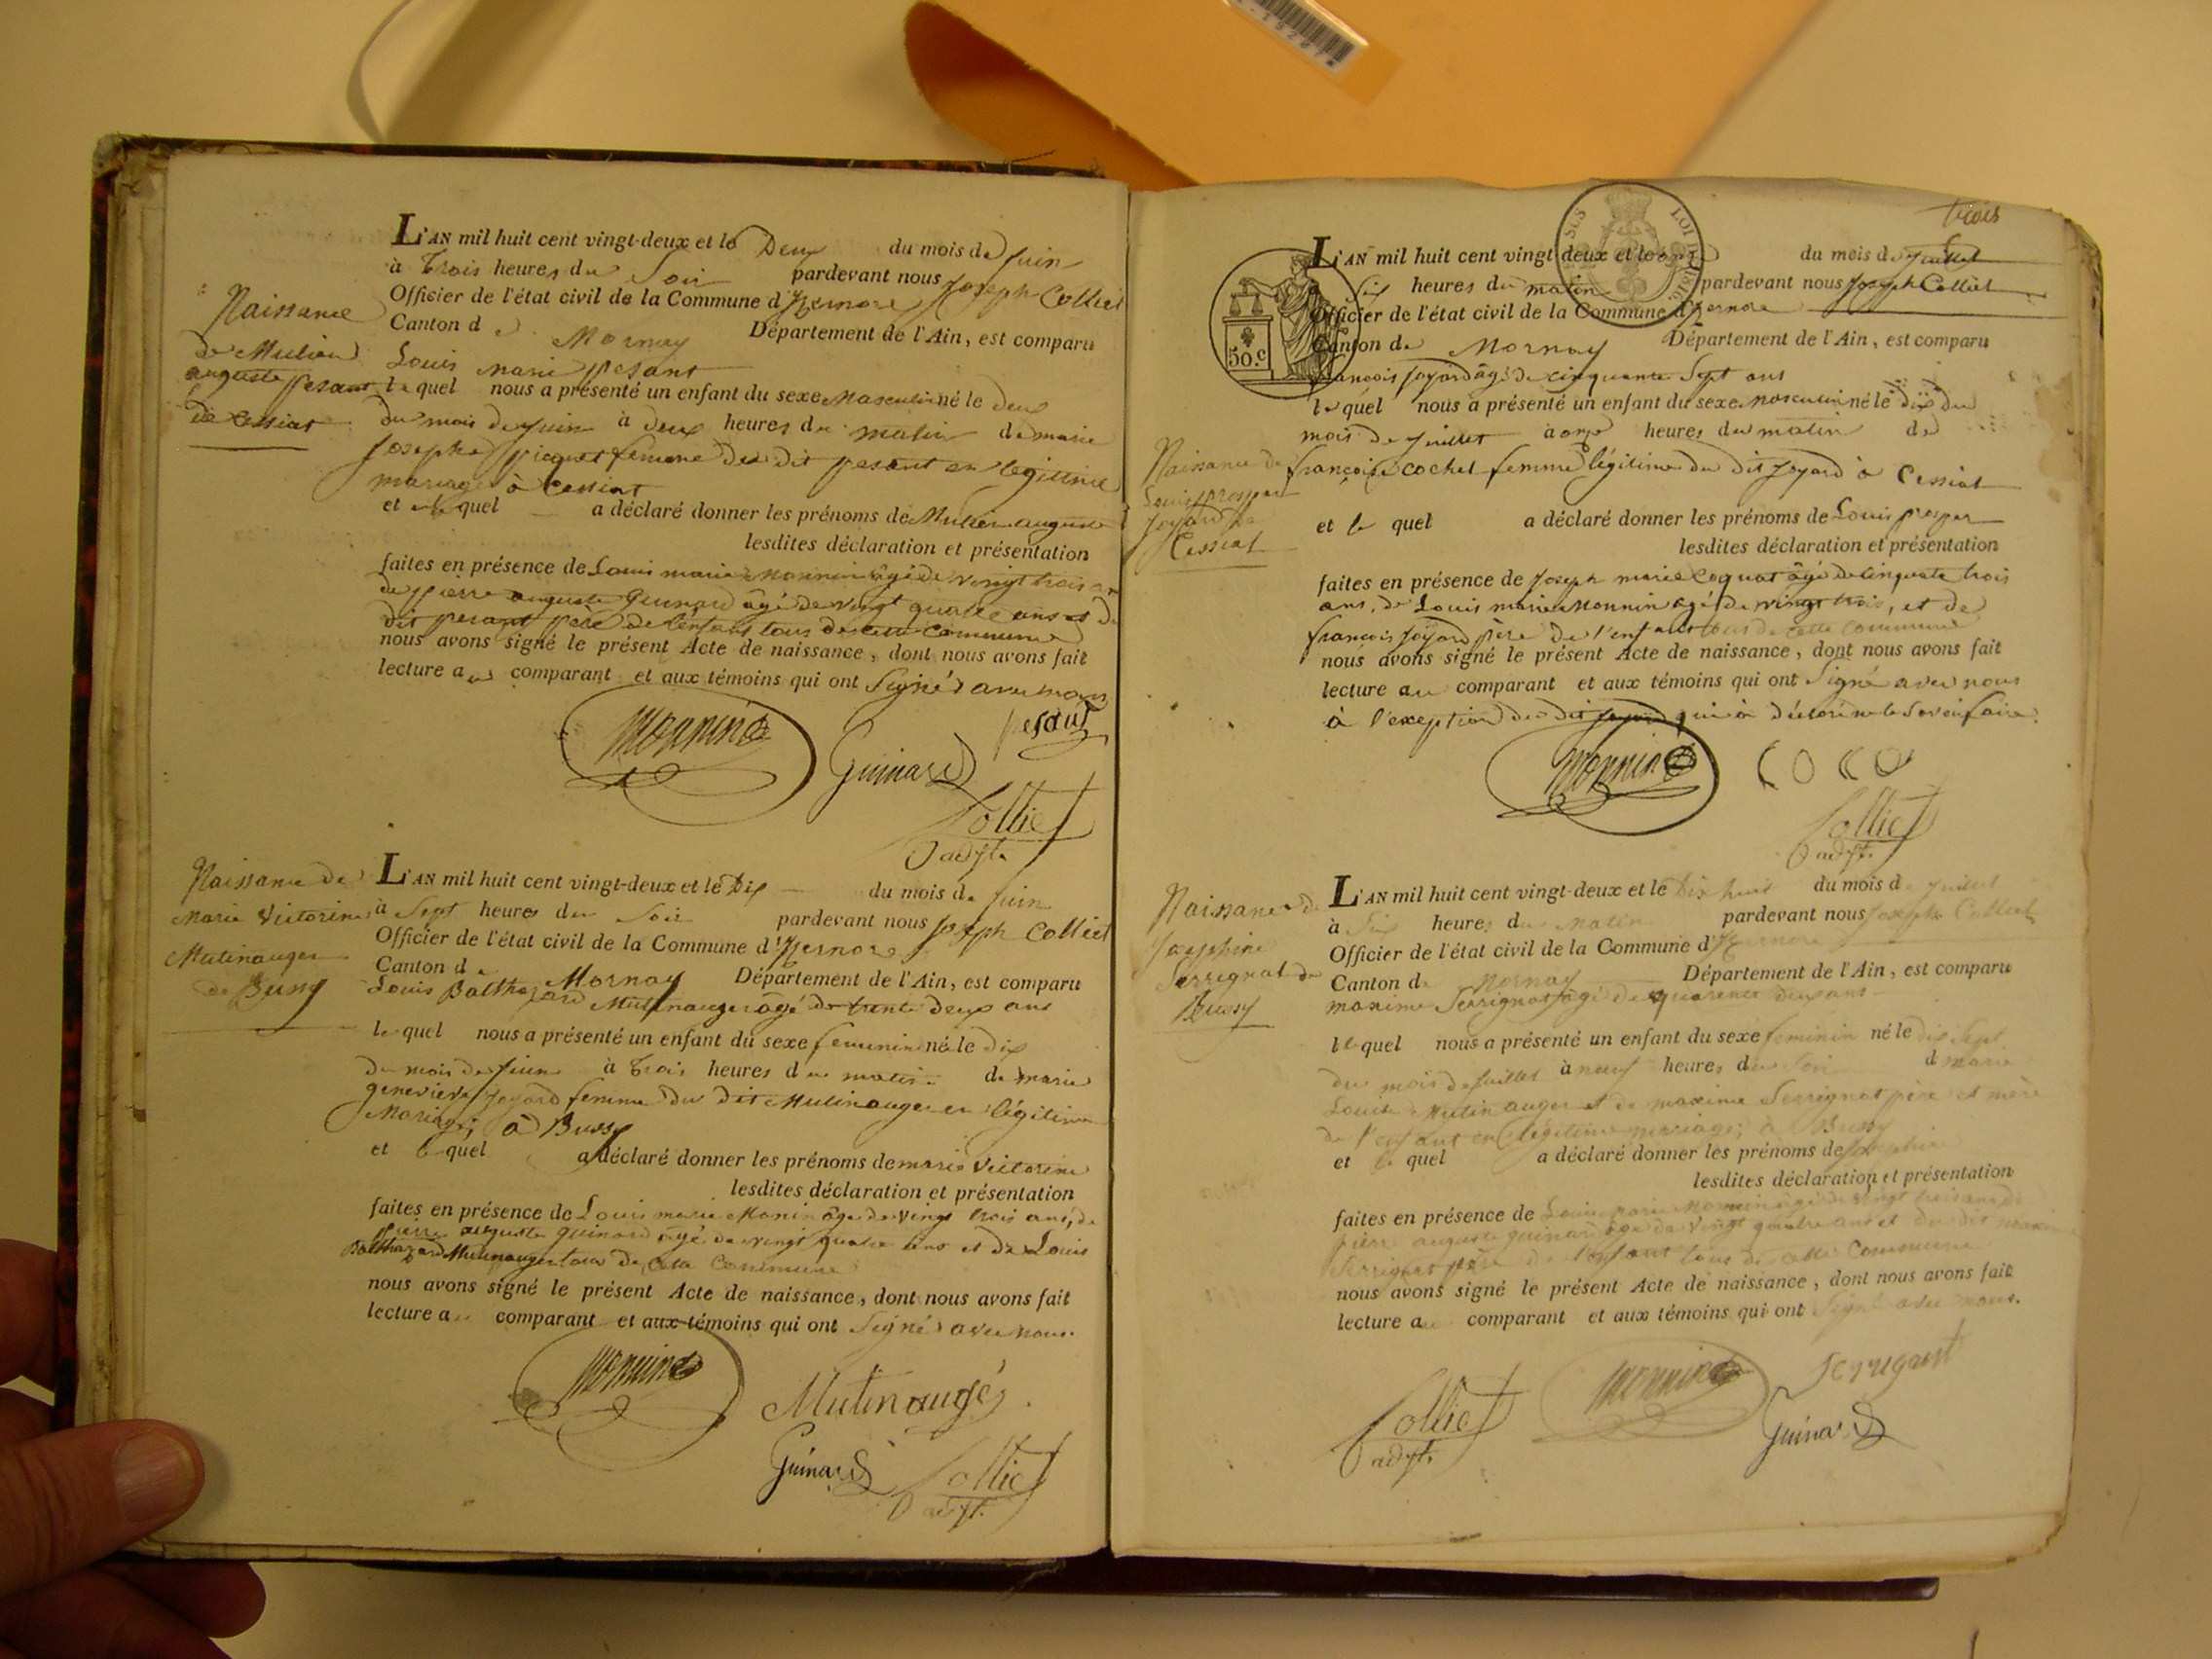 L'AN mil huit cent vingt-deux et le Deux du mois de Juin
à Trois heures du Soir pardevant nous Joseph Colliet
Officier de l'état civil de la Commune d'Izernore
Canton de Mornay Département de l'Ain, est comparu
Louis Marie pesant
lequel nous a présenté un enfant du sexe Masculin né le deux
du mois de Juin à deux heures du matin de marie
Josephe picquet femme du dit pesant en legitime
mariage à Cessiat
et lequel a déclaré donner les prénoms de auguste
lesdites déclaration et présentation
faites en présence de Louis marie Monnin âgé de vingt trois
de pierre auguste Guinard âgé de vingt quatre ans et du
dit pesant père de l'enfant tous de cette Commune
nous avons signé le présent Acte de naissance, dont nous avons fait
lecture au comparant et aux témoins qui ont Signés avec nous
Naissance
de
auguste pesant
de Cessiat
Monnin
Guinard
pesant
Colliet
adjt.
Naissance de
Marie Victorine
Mulinauger
de Bussy
L'AN mil huit cent vingt-deux et le Dix du mois de Juin
à Sept heures du Soir pardevant nous Joseph Colliet
Officier de l'état civil de la Commune d'Izernore
Canton de Mornay Département de l'Ain, est comparu
Louis Balthazard Mulinauger âgé de trente deux ans
lequel nous a présenté un enfant du sexe feminin né le dix
du mois de Juin à trois heures du matin de marie
genevieve Joyard femme du dit Mulinauger en légitime
Mariage; à Bussy
et lequel a déclaré donner les prénoms de marie Victorine
lesdites déclaration et présentation
faites en présence de Louis marie Monin âgé de vingt trois ans, de
pierre auguste guinard âgé de vingt quatre ans et de Louis
Balthazard Mulinauger tous de cette Commune
nous avons signé le présent Acte de naissance, dont nous avons fait
lecture au comparant et aux témoins qui ont Signés avec nous.
Monnin
Mulinaugé
Guinard
Colliet
adjt.
trois
50.c
L'AN mil huit cent vingt-deux et le du mois de Juillet
Six heures du matin pardevant nous Joseph Colliet
Officier de l'état civil de la Commune d'Izernore
Canton de Mornay Département de l'Ain, est comparu
françois Joyard âgé de cinquante Sept ans
lequel nous a présenté un enfant du sexe masculin né le dix du
mois de Juillet à onze heures du matin de
françoise cochet femme légitime du dit Joyard à Cessiat
et lequel a déclaré donner les prénoms de Louis prosper
lesdites déclaration et présentation
faites en présence de Joseph marie Coquat âgé de cinquante trois
ans, de Louis marie Monnin âgé de vingt trois, et de
françois Joyard père de l'enfant tous de cette Commune
nous avons signé le présent Acte de naissance, dont nous avons fait
lecture au comparant et aux témoins qui ont Signé avec nous
à l'exeption du dit Joyard qui a déclaré ne le savoir faire.
Naissance de
Louis prosper
Joyard de
Cessiat
Monnin
Colliet
adjt.
Naissance de
Josephine
Serrignat de
Bussy
L'AN mil huit cent vingt-deux et le Dix huit du mois de Juillet
à Six heures du Matin pardevant nous Joseph Colliet
Officier de l'état civil de la Commune d'Izernore
Canton de Mornay Département de l'Ain, est comparu
maxime Serrignat âgé de quarante deux ans
lequel nous a présenté un enfant du sexe feminin né le dix Sept
du mois de Juillet à neuf heures du Soir de marie
Louise Mulinauger et de maxime Serrignat père et mère
de l'enfant en légitime mariage; à Bussy
et lequel a déclaré donner les prénoms de Josephine
lesdites déclaration et présentation
faites en présence de Louis marie Monnin âgé de vingt trois ans de
pierre auguste guinard âgé de vingt quatre ans et du dit maxime
Serrignat père de l'enfant tous de cette Commune
nous avons signé le présent Acte de naissance, dont nous avons fait
lecture au comparant et aux témoins qui ont Signé avec nous.
Colliet
adjt.
Monnin
Serrigant
Guinard